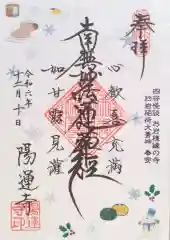 奉拝
四谷怪談 お岩様縁の寺
於岩稲荷大善神 奉安
心歓喜充満
南無妙法蓮華経
如甘露見灌
令和六年
十二月十日
陽運寺